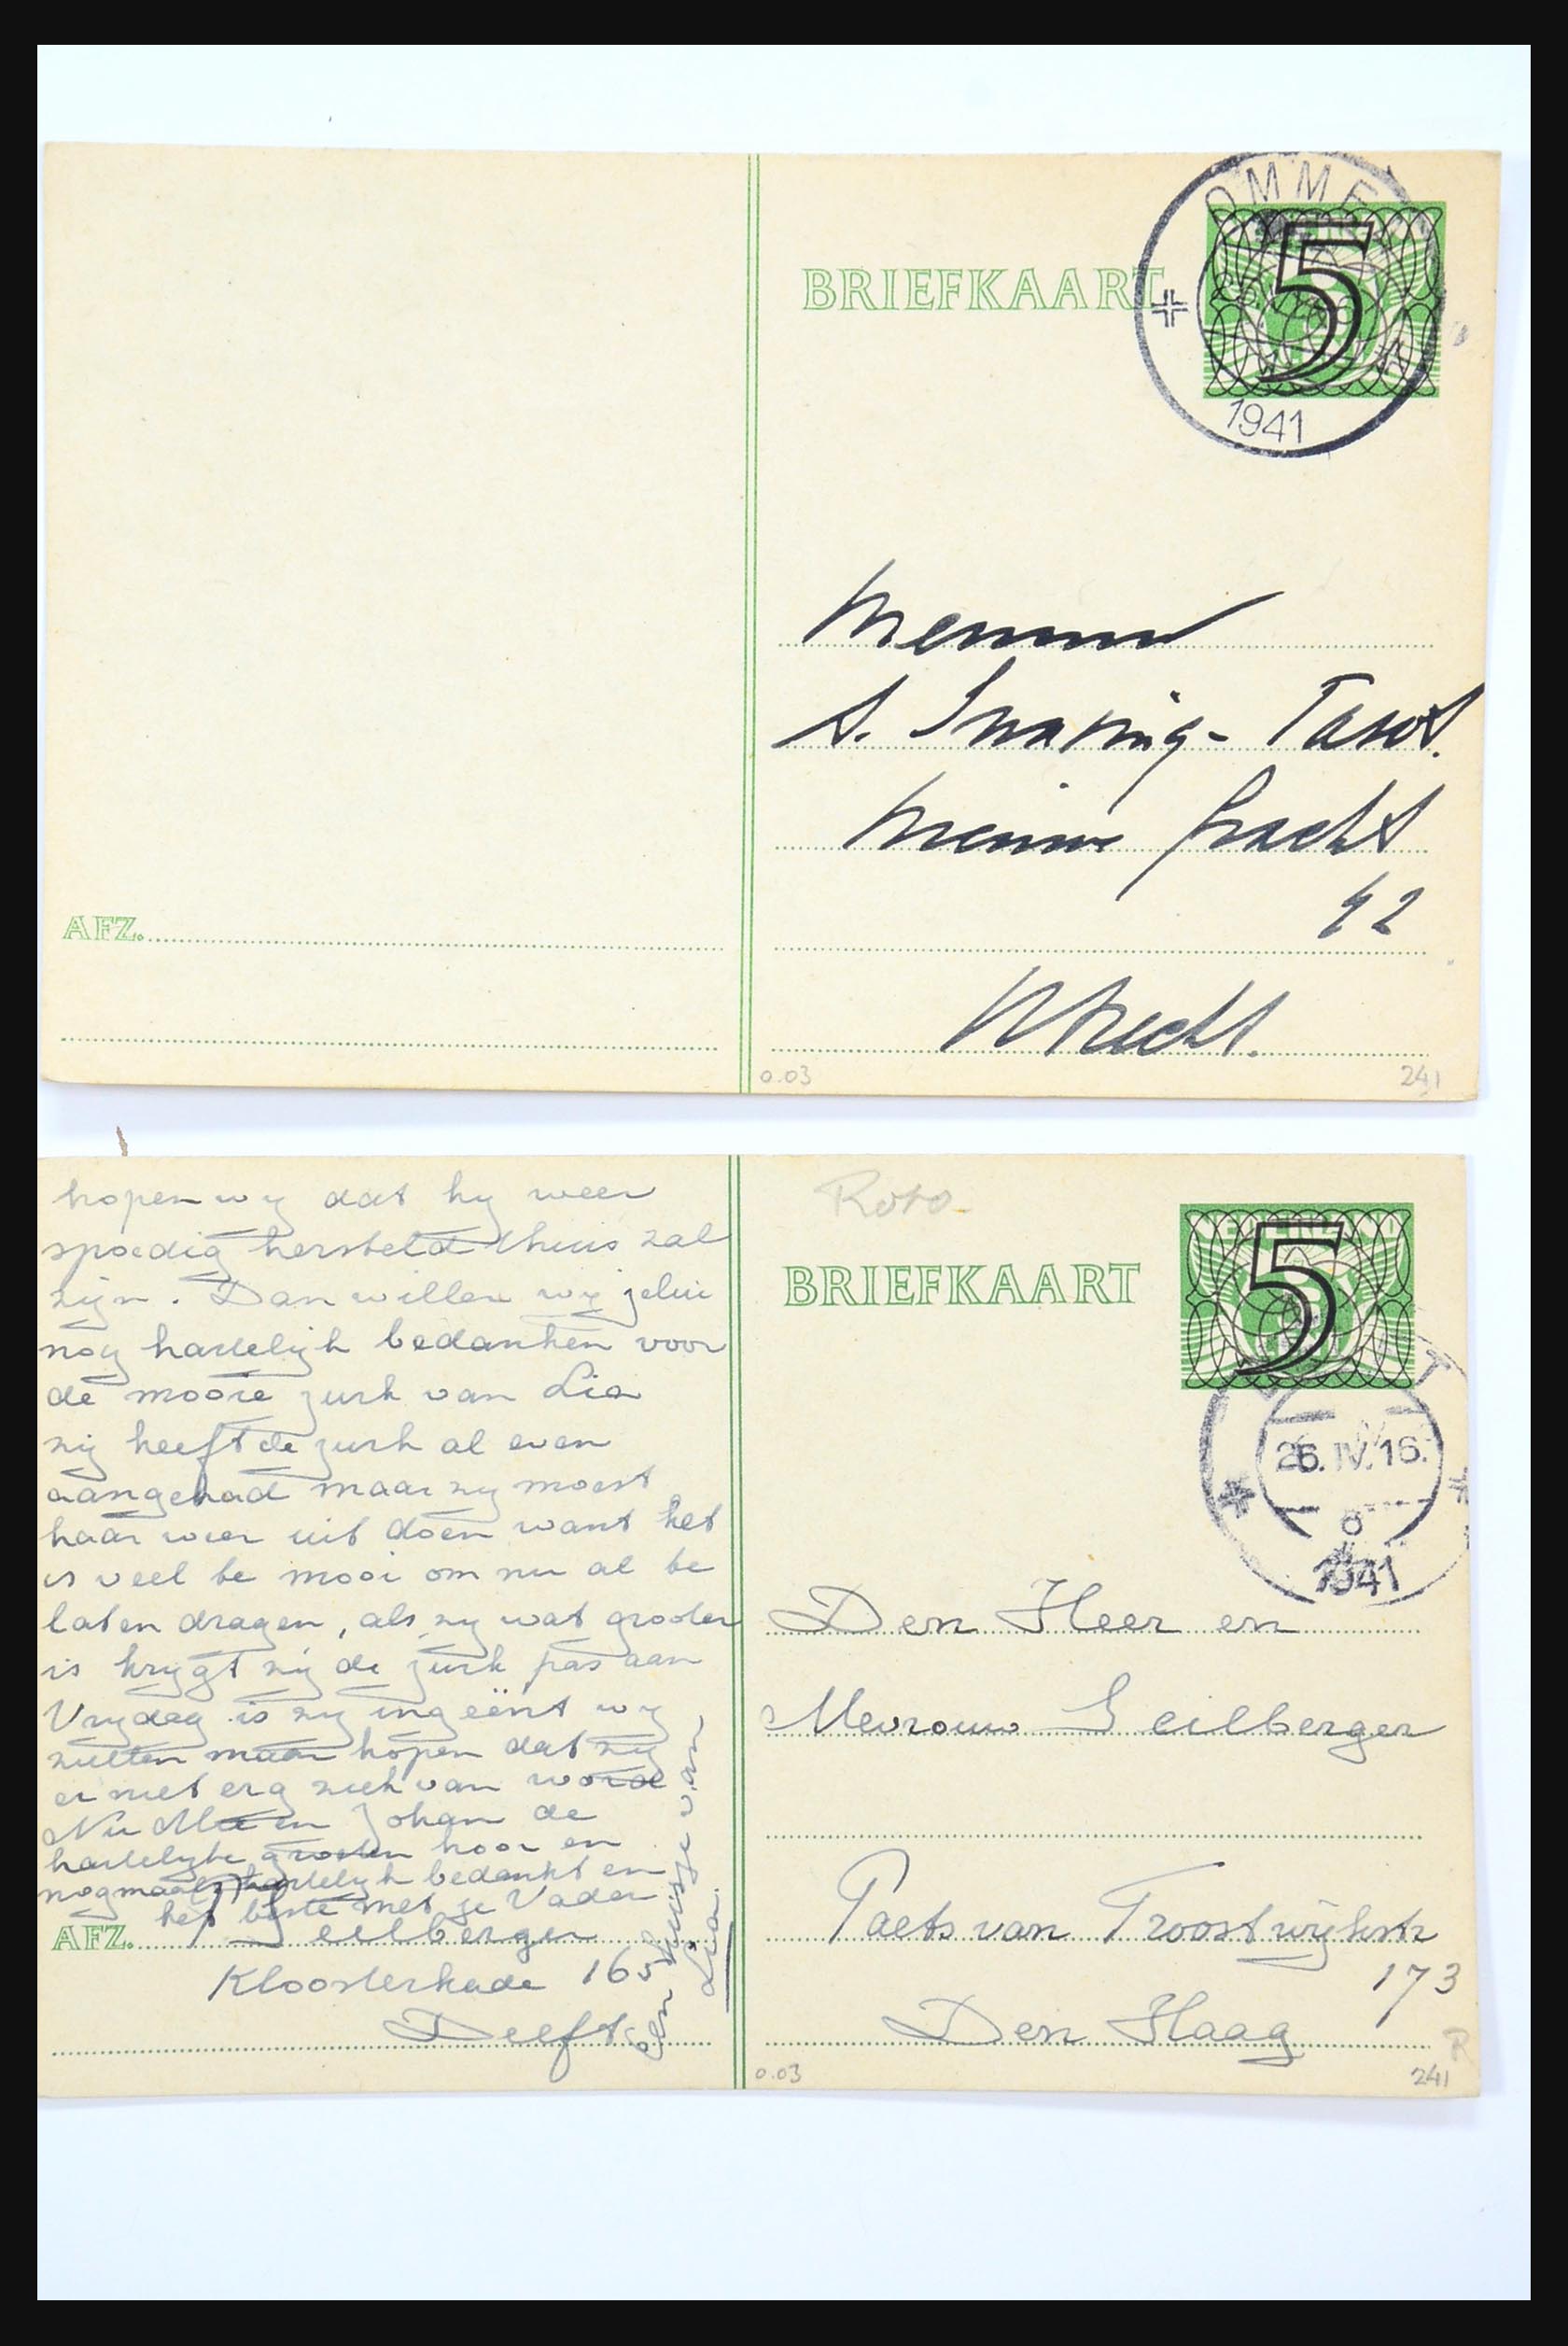 OMMEN
BRIEFKAART
5
1941
Mevrouw
Nieuwe Gracht
42
Utrecht.
AFZ.
0.03
241
hopen wy dat hy weer
spoedig hersteld thuis zal
zijn. Dan willen wy jelui
nog hartelijk bedanken voor
de mooie jurk van Lia
zij heeft de jurk al even
aangehad maar zy moest
haar weer uit doen want het
is veel te mooi om nu al te
laten dragen, als zy wat grooter
is krygt zij de jurk pas aan
Vrydag is zy ingeënt wy
zullen maar hopen dat zij
er niet erg ziek van word
Nu M en Johan de
hartelyke groeten hoor en
nogmaals hartelyk bedankt en
het beste met je Vader
AFZ. Seilberger
Kloosterkade 165
Delft
een kusje van
Lia.
Roto
BRIEFKAART
5
26.IV.16.
1941
Den Heer en
Mevrouw Seilberger
Paets van Troostwijkstr
173
Den Haag
R
0.03
241